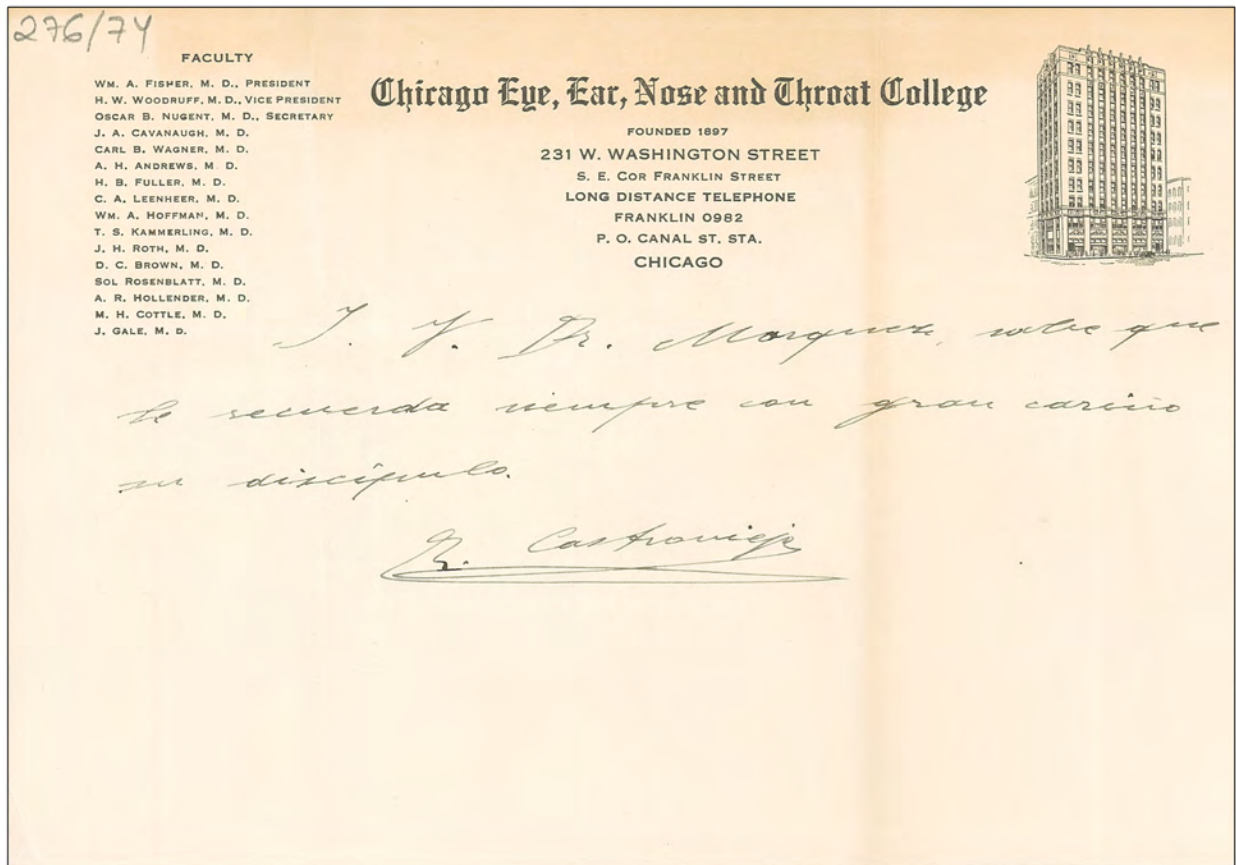 276/74
FACULTY
WM. A. FISHER, M. D., PRESIDENT
H. W. WOODRUFF, M. D., VICE PRESIDENT
OSCAR B. NUGENT, M. D., SECRETARY
J. A. CAVANAUGH, M. D.
CARL B. WAGNER, M. D.
A. H. ANDREWS, M. D.
H. B. FULLER, M. D.
C. A. LEENHEER, M. D.
WM. A. HOFFMAN, M. D.
T. S. KAMMERLING, M. D.
J. H. ROTH, M. D.
D. C. BROWN, M. D.
SOL ROSENBLATT, M. D.
A. R. HOLLENDER, M. D.
M. H. COTTLE, M. D.
J. GALE, M. D.
Chicago Eye, Ear, Nose and Throat College
FOUNDED 1897
231 W. WASHINGTON STREET
S. E. COR FRANKLIN STREET
LONG DISTANCE TELEPHONE
FRANKLIN 0982
P. O. CANAL ST. STA.
CHICAGO
Dr. Marquez, sabe que
le recuerda siempre con gran cariño
su discípulo.
R. Castroviejo